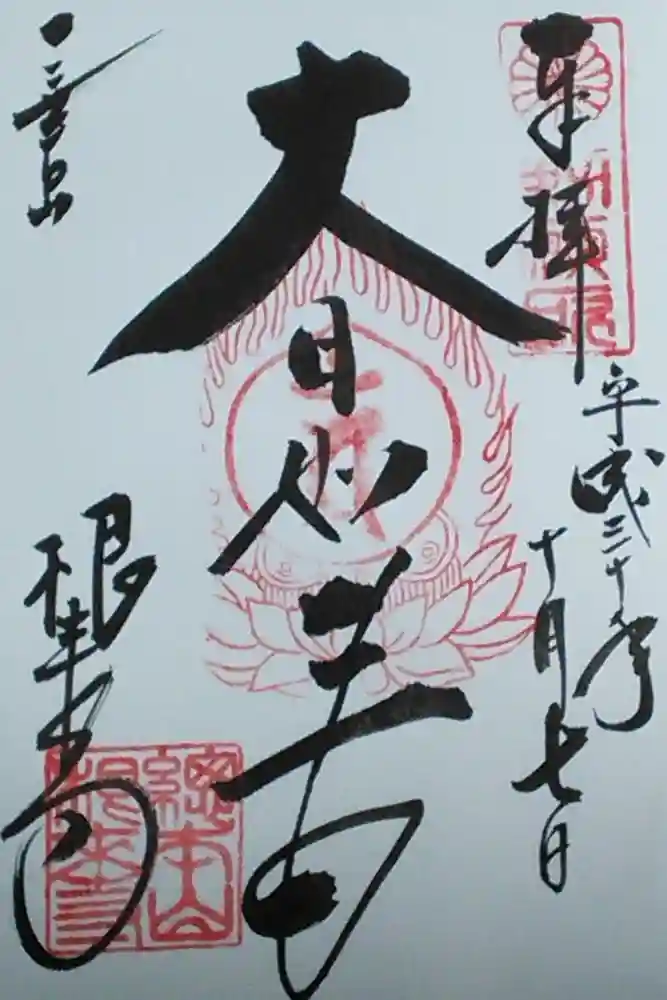 奉拝
平成三十年
十月七日
大日如来
一乗山
根来寺
總本山
根来寺